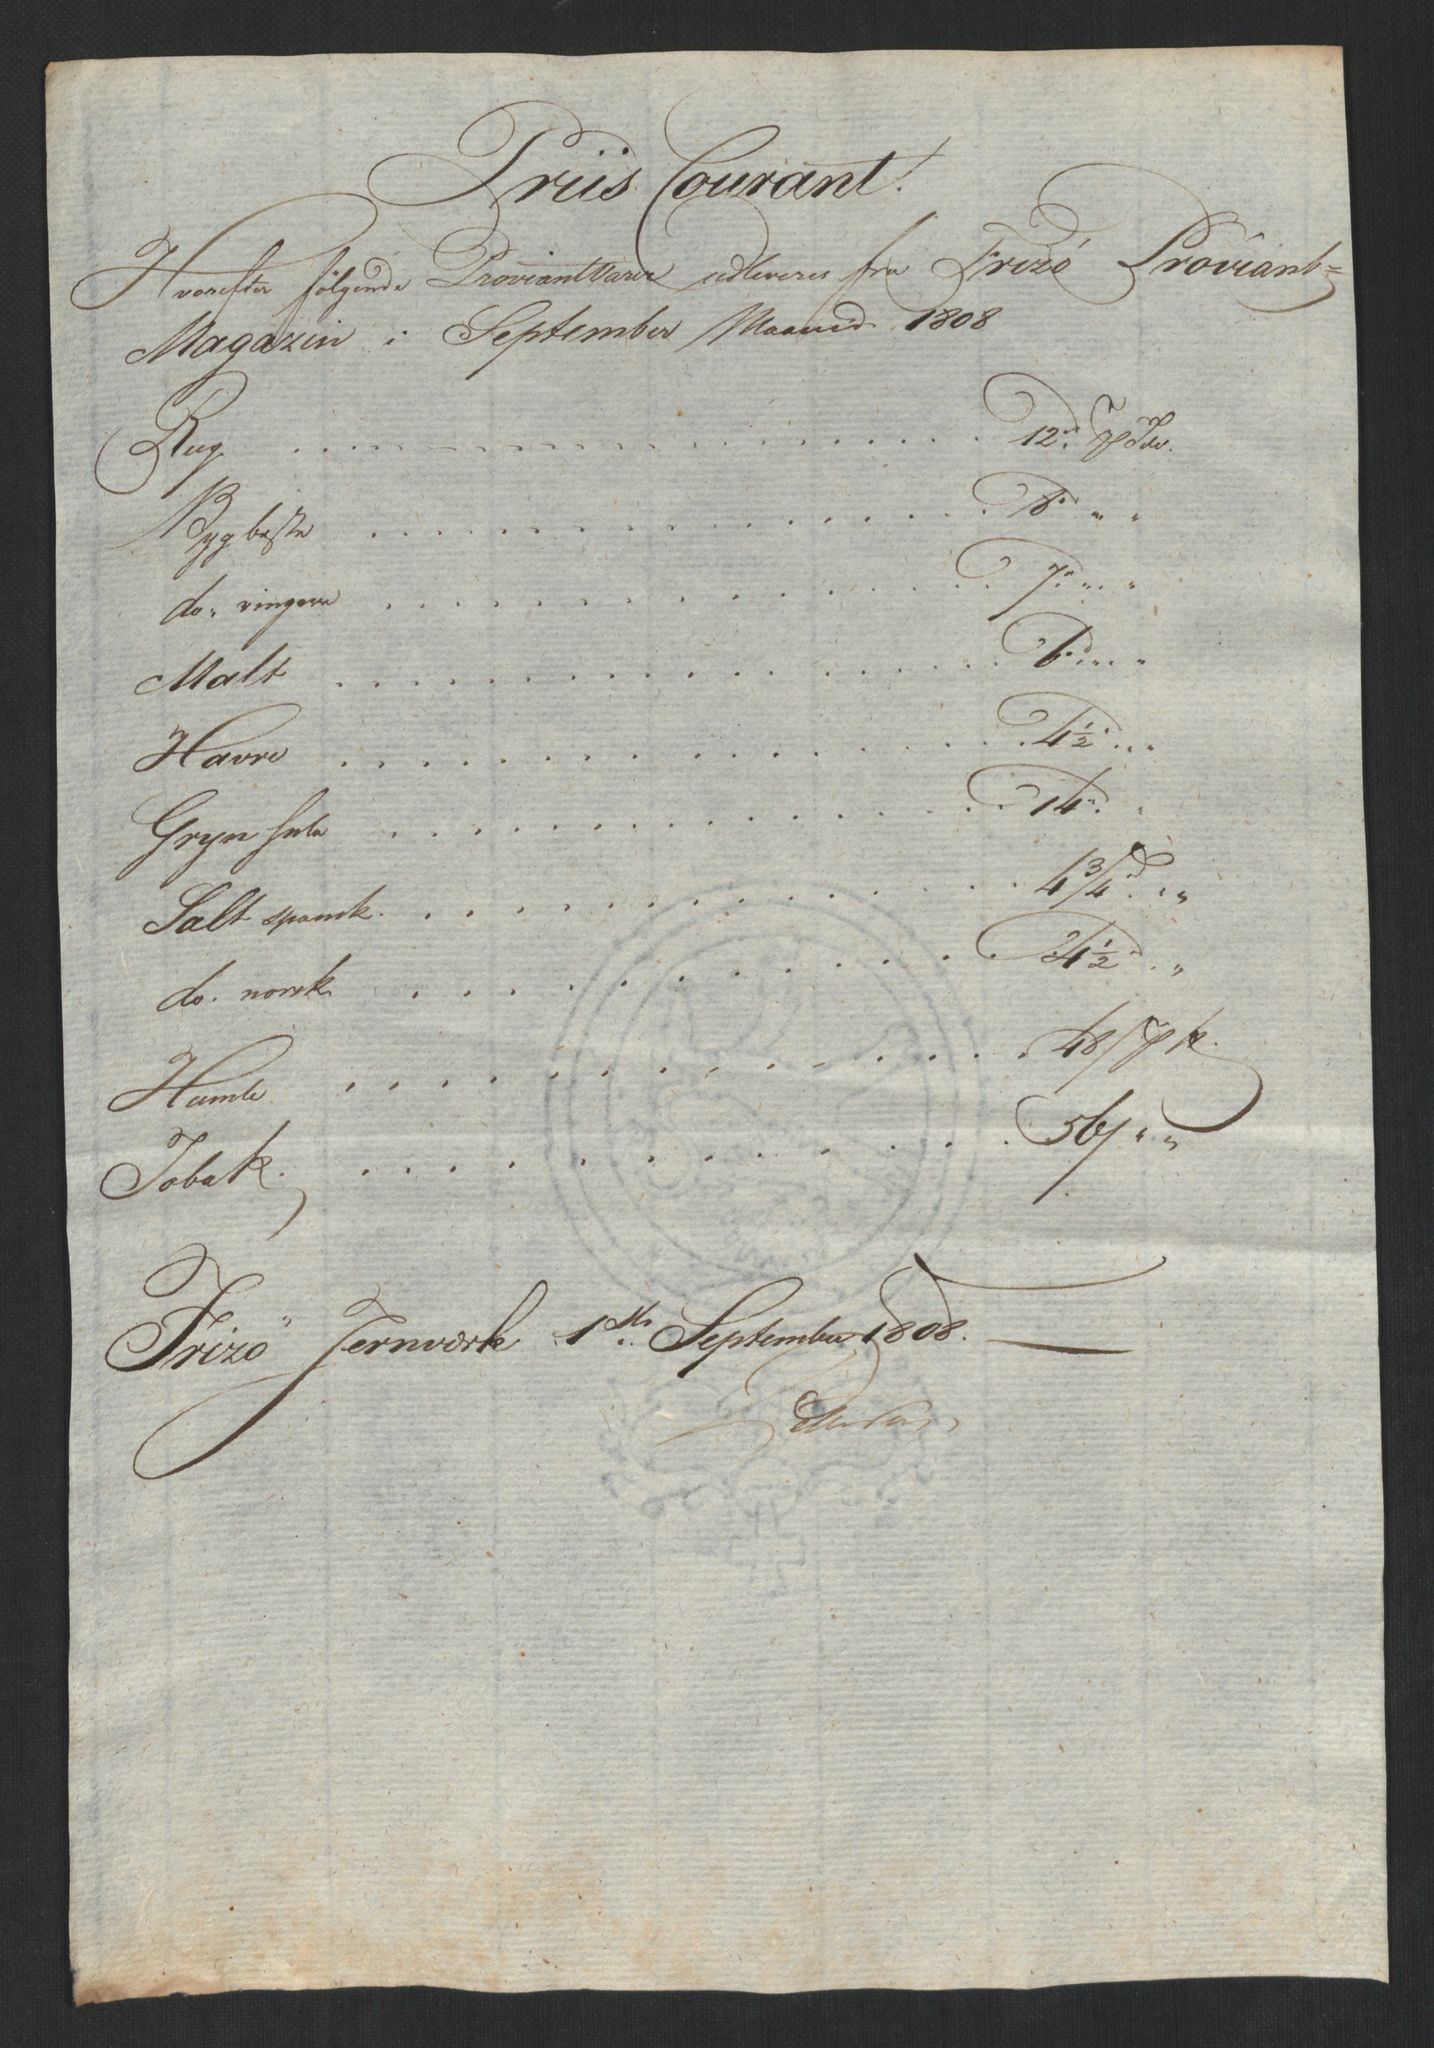 Priis Courant.
Hvorefter følgende Proviantvarer udleveres fra Frizö Proviant=
Magazin i September Maaned 1808
Rug . . . 12 rd. pr Tde.
Byg beste . . . 8 rd. " "
do. ringere . . . 7 rd. " "
Malt . . . 6 rd. " "
Havre . . . 4 1/2 rd. " "
Gryn hele . . . 14 rd. "
Salt spansk . . . 4 3/4 rd. " "
do. norsk . . . 4 1/2 rd. " "
Humle . . . 48 / pr
Tobak . . . 56 / " "
Frizö Jernværk 1ste September 1808.